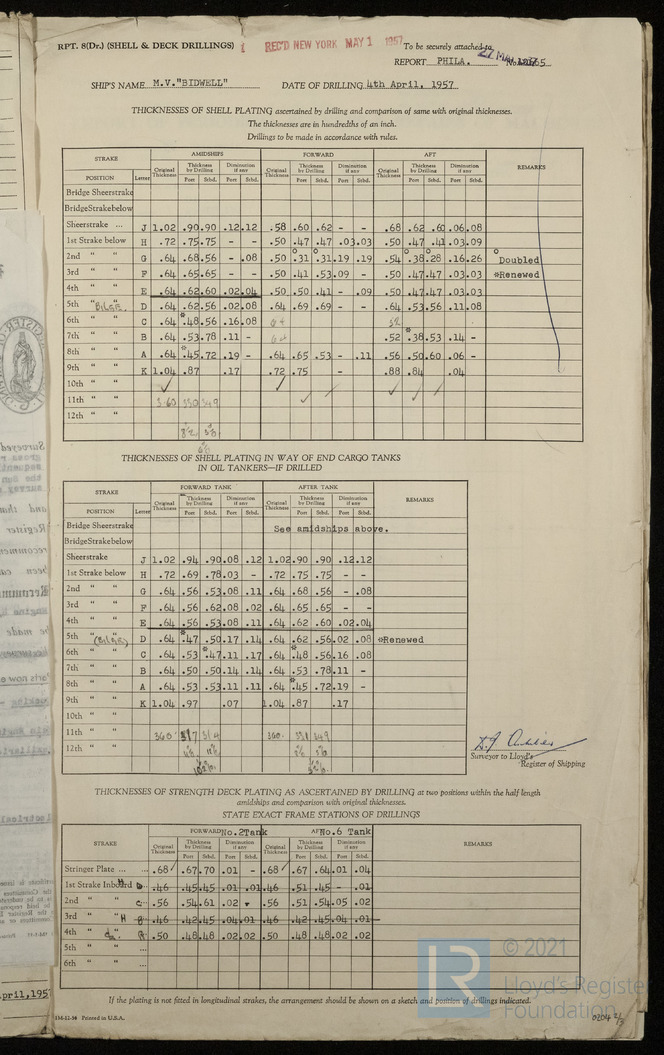 RPT. 8(Dr.) (SHELL & DECK DRILLINGS)
REC'D NEW YORK MAY 1 1957
To be securely attached to
REPORT PHILA.
SHIP'S NAME M.V."BIDWELL" DATE OF DRILLING 4th April, 1957
THICKNESSES OF SHELL PLATING ascertained by drilling and comparison of same with original thicknesses.
The thicknesses are in hundredths of an inch.
Drillings to be made in accordance with rules.
STRAKE AMIDSHIPS FORWARD AFT REMARKS
POSITION Letter Original Thickness Thickness by Drilling Diminution if any Original Thickness Thickness by Drilling Diminution if any Original Thickness Thickness by Drilling Diminution if any
Port Stbd. Port Stbd. Port Stbd. Port Stbd. Port Stbd. Port Stbd.
Bridge Sheerstrake
Bridge Strake below
Sheerstrake ... J 1.02 .90 .90 .12 .12 .58 .60 .62 - - .68 .62 .60 .06 .08
1st Strake below H .72 .75 .75 - - .50 .47 .47 .03 .03 .50 .47 .41 .03 .09
2nd " " G .64 .68 .56 - .08 .50 .31 .31 .19 .19 .54 .38 .28 .16 .26 Doubled
3rd " " F .64 .65 .65 - - .50 .41 .53 .09 - .50 .47 .47 .03 .03 *Renewed
4th " " E .64 .62 .60 .02 .04 .50 .50 .41 - .09 .50 .47 .47 .03 .03
5th " BILGE. D .64 .62 .56 .02 .08 .64 .69 .69 - - .64 .53 .56 .11 .08
6th " " C .64 *.48 .56 .16 .08
7th " " B .64 .53 .78 .11 - .52 *.38 .53 .14 -
8th " " A .64 *.45 .72 .19 - .64 .65 .53 - .11 .56 .50 .60 .06 -
9th " " K 1.04 .87 .17 .72 .75 - .88 .84 .04
10th " "
11th " "
12th " "
THICKNESSES OF SHELL PLATING IN WAY OF END CARGO TANKS
IN OIL TANKERS—IF DRILLED
STRAKE FORWARD TANK AFTER TANK REMARKS
POSITION Letter Original Thickness Thickness by Drilling Diminution if any Original Thickness Thickness by Drilling Diminution if any
Port Stbd. Port Stbd. Port Stbd. Port Stbd.
Bridge Sheerstrake See amidships above.
Bridge Strake below
Sheerstrake J 1.02 .94 .90 .08 .12 1.02 .90 .90 .12 .12
1st Strake below H .72 .69 .78 .03 - .72 .75 .75 - -
2nd " " G .64 .56 .53 .08 .11 .64 .68 .56 - .08
3rd " " F .64 .56 .62 .08 .02 .64 .65 .65 - -
4th " " E .64 .56 .53 .08 .11 .64 .62 .60 .02 .04
5th " (BILGE) D .64 *.47 .50 .17 .14 .64 .62 .56 .02 .08 *Renewed
6th " " C .64 .53 *.47 .11 .17 .64 *.48 .56 .16 .08
7th " " B .64 .50 .50 .14 .14 .64 .53 .78 .11 -
8th " " A .64 .53 .53 .11 .11 .64 *.45 .72 .19 -
9th " " K 1.04 .97 .07 1.04 .87 .17
10th " "
11th " " 360
12th " "
Surveyor to Lloyd's
Register of Shipping
THICKNESSES OF STRENGTH DECK PLATING AS ASCERTAINED BY DRILLING at two positions within the half length
amidships and comparison with original thicknesses.
STATE EXACT FRAME STATIONS OF DRILLINGS
STRAKE FORWARD No.2 Tank No.6 Tank REMARKS
Original Thickness Thickness by Drilling Diminution if any Original Thickness Thickness by Drilling Diminution if any
Port Stbd. Port Stbd. Port Stbd. Port Stbd.
Stringer Plate ... ... .68 .67 .70 .01 - .68 .67 .64 .01 .04
1st Strake Inboard .46 .45 .45 .01 .01 .46 .51 .45 - .01
2nd " " .56 .54 .61 .02 - .56 .51 .54 .05 .02
3rd " .46 .42 .45 .04 .01 .46 .42 .45 .04 .01
4th " .50 .48 .48 .02 .02 .50 .48 .48 .02 .02
5th " " ...
6th " " ...
If the plating is not fitted in longitudinal strakes, the arrangement should be shown on a sketch and position of drillings indicated.
Printed in U.S.A.
© 2021
Lloyd's Register
Foundation
LR
pril,195